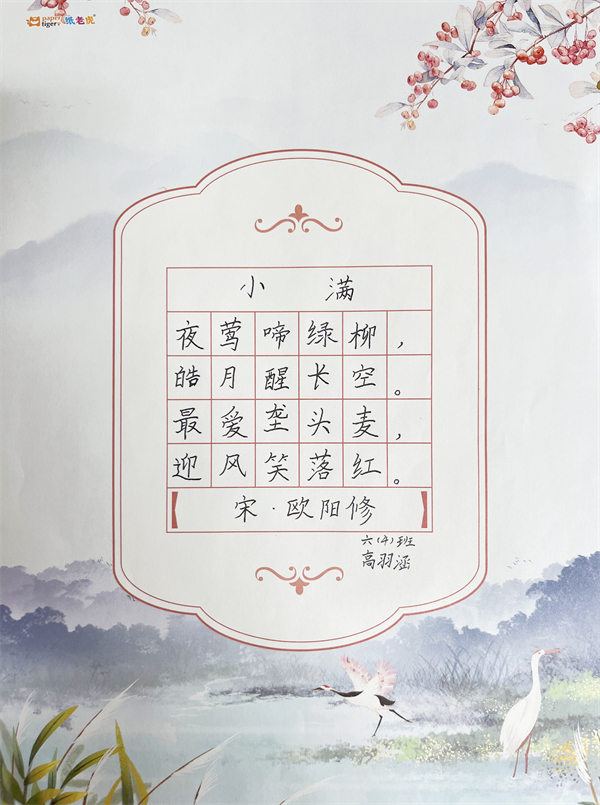 paper tiger 纸老虎
小满
夜莺啼绿柳，
皓月醒长空。
最爱垄头麦，
迎风笑落红。
宋·欧阳修
六(4)班
高羽涵